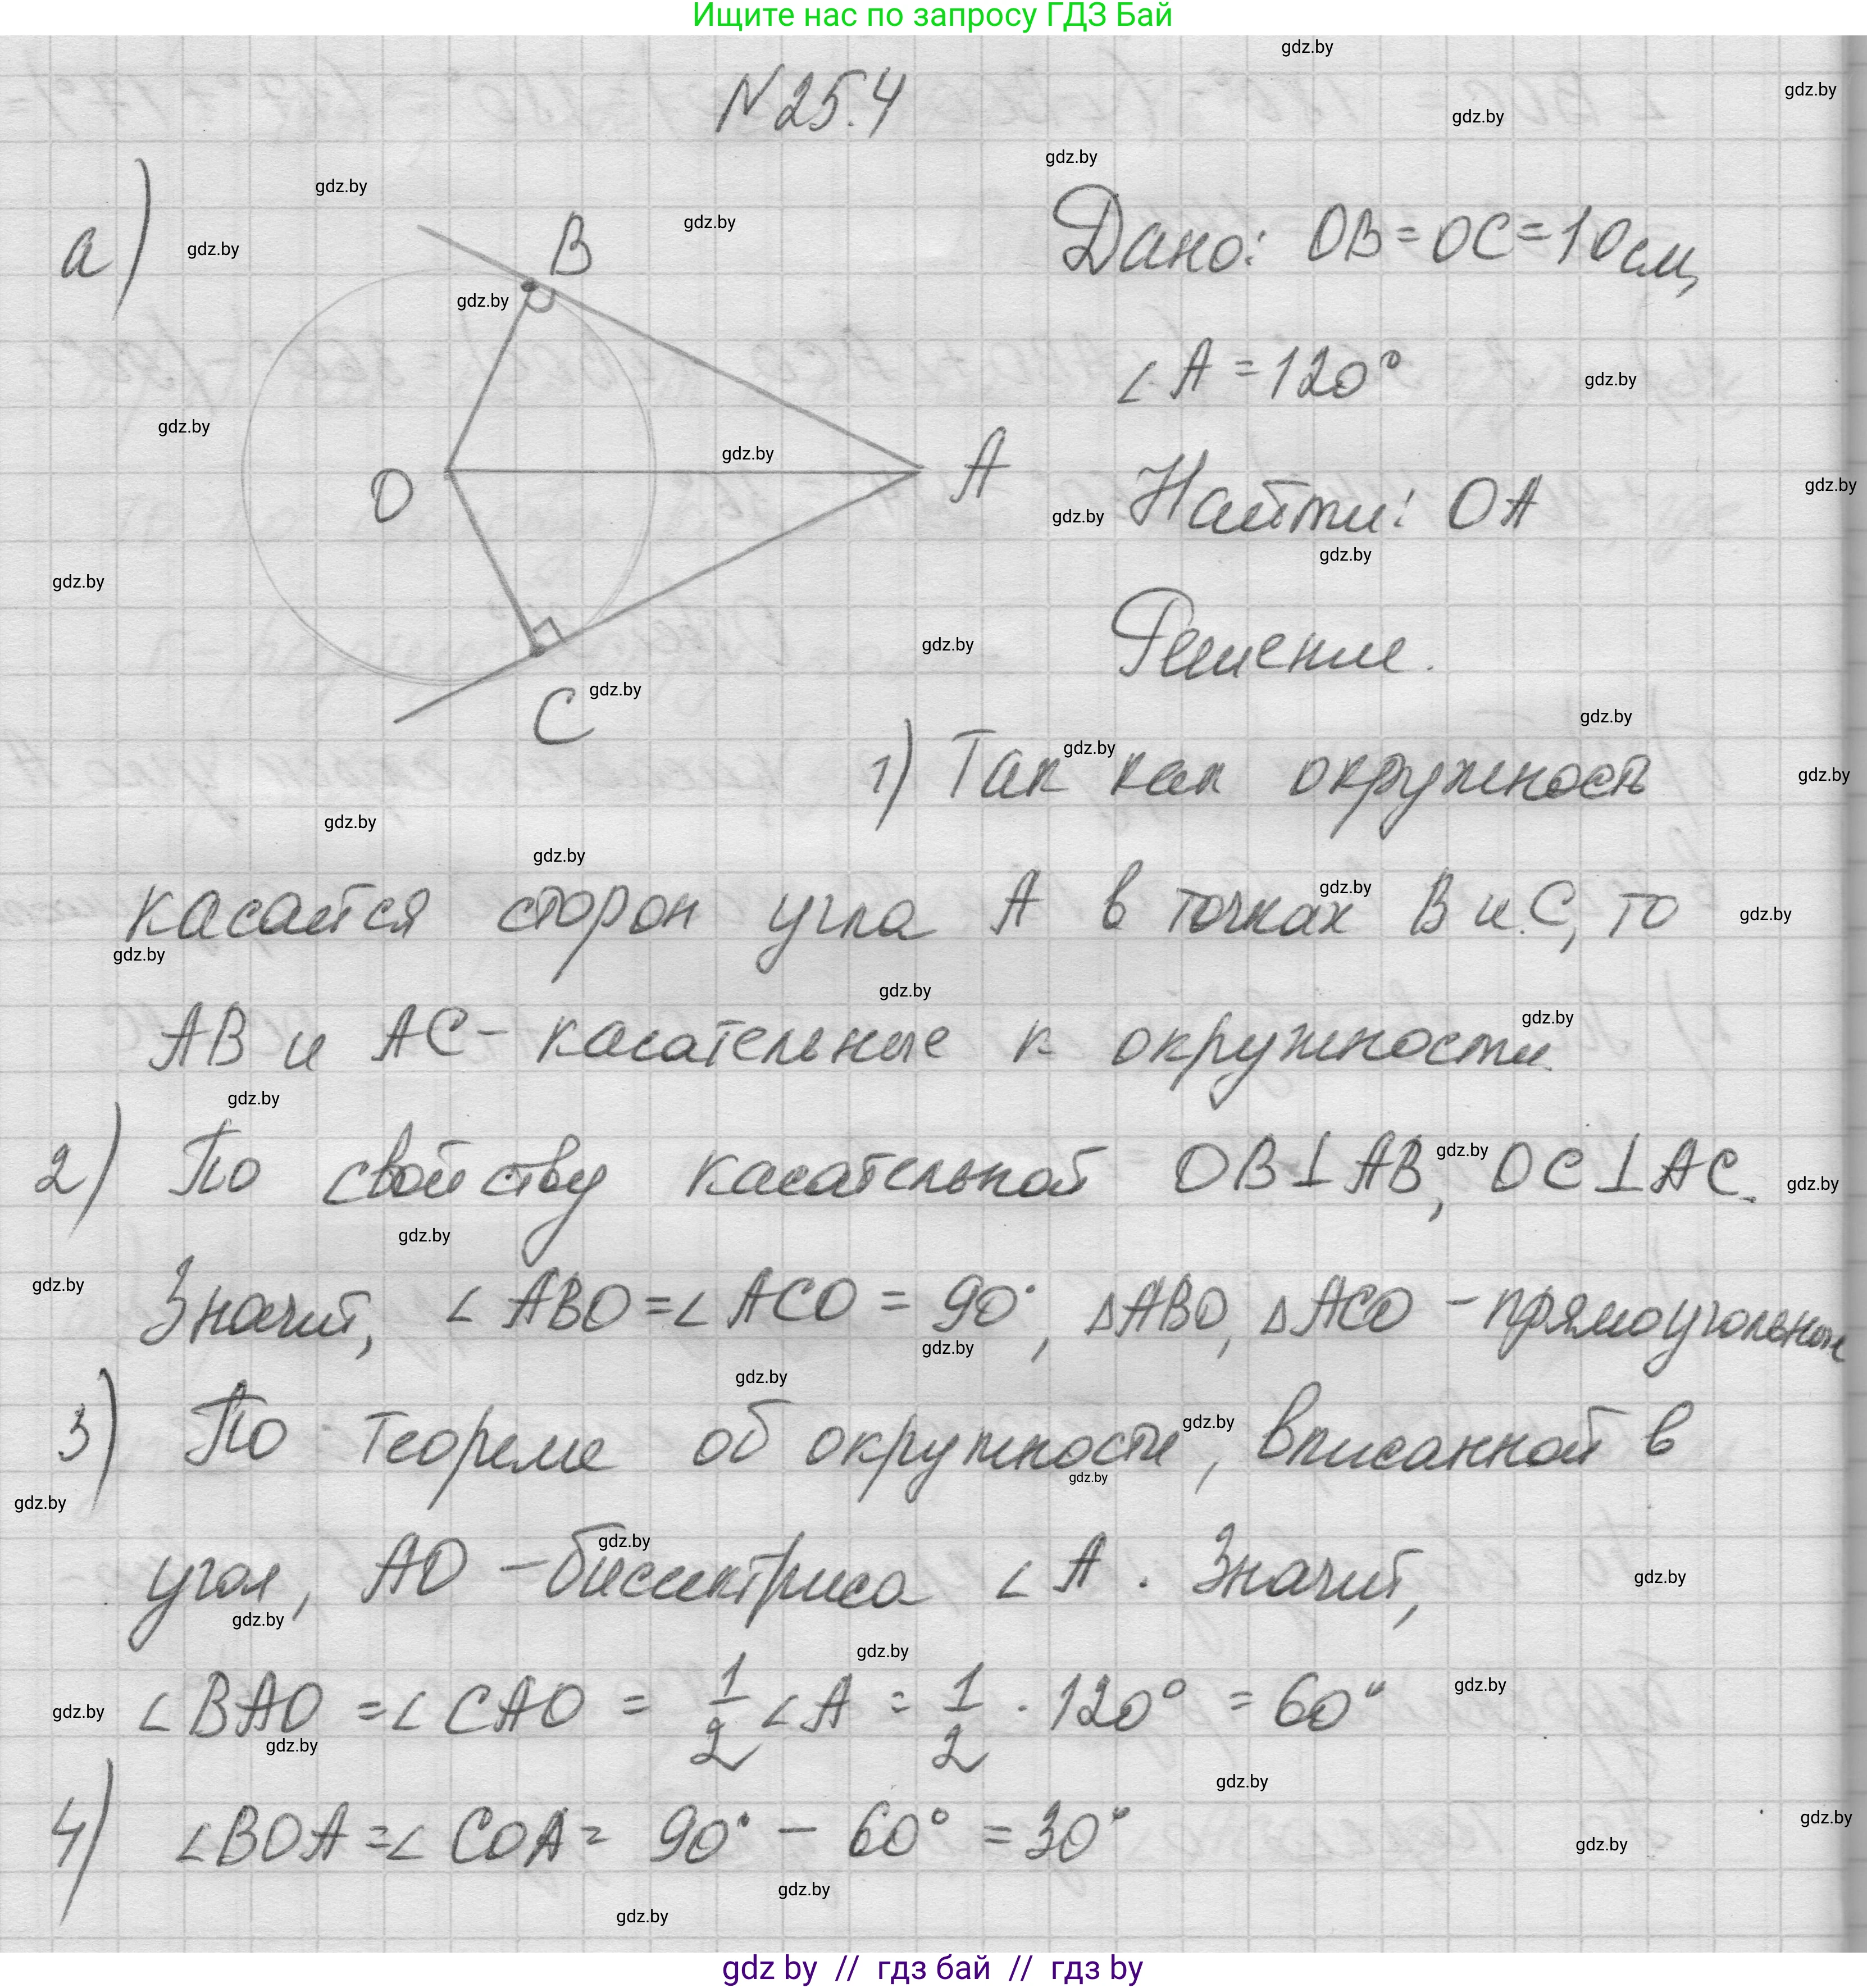 Ищите нас по запросу ГДЗ Бай
N 25.4
а)
B
O
A
C
Дано: OB = OC = 10 см,
∠A = 120°
Найти: OA
Решение.
1) Так как окружность
касается сторон угла A в точках B и C, то
AB и AC - касательные к окружности.
2) По свойству касательной OB⊥AB, OC⊥AC.
Значит, ∠ABO = ∠ACO = 90°, △ABO, △ACO - прямоугольные
3) По теореме об окружности, вписанной в
угол, AO - биссектриса ∠A. Значит,
∠BAO = ∠CAO = 1/2 ∠A = 1/2 · 120° = 60°
4) ∠BOA = ∠COA = 90° - 60° = 30°
gdz by // гдз бай // гдз by